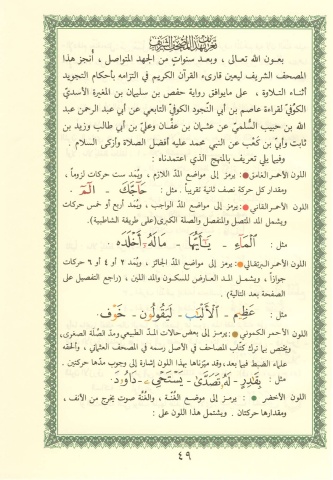 تعريف بهذا المصحف الشريف
بعـون الله تعـالى ، وبعـد سنوات من الجهد المتواصل ، أُنجز هذا
المصحف الشريف ليعين قارىء القرآن الكريم في التزامه بأحكام التجويد
أثنـاء التـلاوة ، على مايوافق رواية حفص بن سليمان بن المغيرة الأسديّ
الكوفيّ لقراءة عاصم بن أبي النجود الكوفيّ التابعي عن أبي عبد الرحمن عبد
الله بن حبيب السُّلميّ عن عثـمان بن عفّـان وعليّ بن أبي طالب وزيد بن
ثابت وأُبيّ بن كَعْب عن النبي محمد عليه أفضل الصلاة وأزكى السلام .
وفيما يلي تعريف بالمنهج الذي اعتمدناه :
اللون الأحمر الغامق : يرمز إلى مواضع المدّ اللازم ، ويُمَد ست حركات لزوماً ،
ومقدار كل حركة نصف ثانية تقريباً . مثل : حَآجَّكَ - الٓمٓ .
اللون الأحمر القاني : يرمز إلى مواضع المدّ الواجب ، ويُمَد أربع أو خمس حركات
ويشمل المد المتصل والمنفصل والصلة الكبرى (على طريقة الشاطبية) .
مثل : ٱلْمَآءِ - يَٰٓأَيُّهَا - مَالَهُۥٓ أَخْلَدَهُۥ
اللون الأحمر البرتقالي : يرمز إلى مواضع المدّ الجائز ، ويُمَد ٢ أو ٤ أو ٦ حركات
جوازاً ، ويشمـل المـد العـارض للسكون والمد اللين ، (راجع التفصيل على
الصفحة بعد التالية) .
مثل : عَظِيم - ٱلْأَلْبَٰب - لَيَقُولُون - خَوْف
اللون الأحمر الكموني : يرمز إلى بعض حالات المدّ الطبيعي ومدّ الصِّلة الصغرى،
ويختص بما ترك كُتّاب المصاحف في الأصل رسمه في المصحف العثماني ، وألحقه
علماء الضبط فيما بعد، وقد ميّزناها بهذا اللون إشارة إلى وجوب مدّها حركتين .
مثل : بِقَٰدِرٍ - لَهُۥ تَصَدَّىٰ - يَسْتَحْىِۦ - دَاوُۥدَ .
اللون الأخضر : يرمـز إلى موضـع الغُنّـة ، والغُنّة صوت يخرج من الأنف ،
ومقدارها حركتان . ويشتمل هذا اللون على :
٤٩